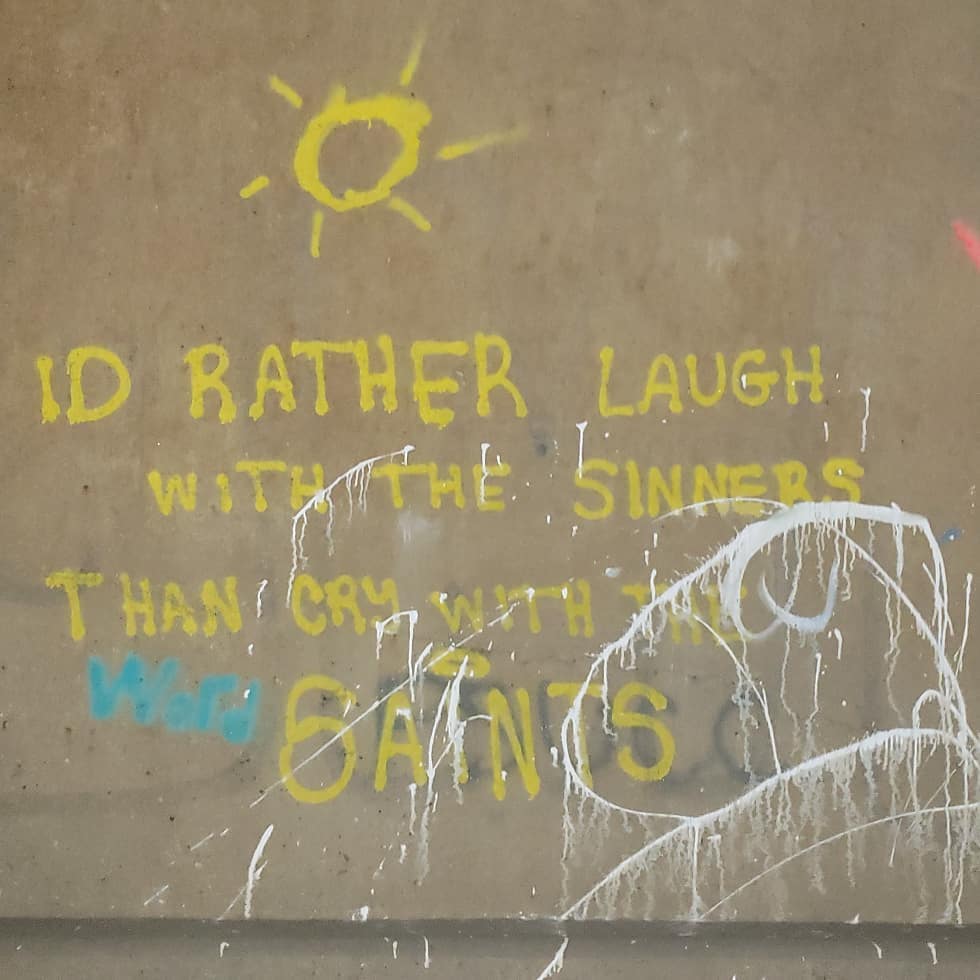 ID RATHER LAUGH
WITH THE SINNERS
THAN CRY WITH THE
Word
SAINTS